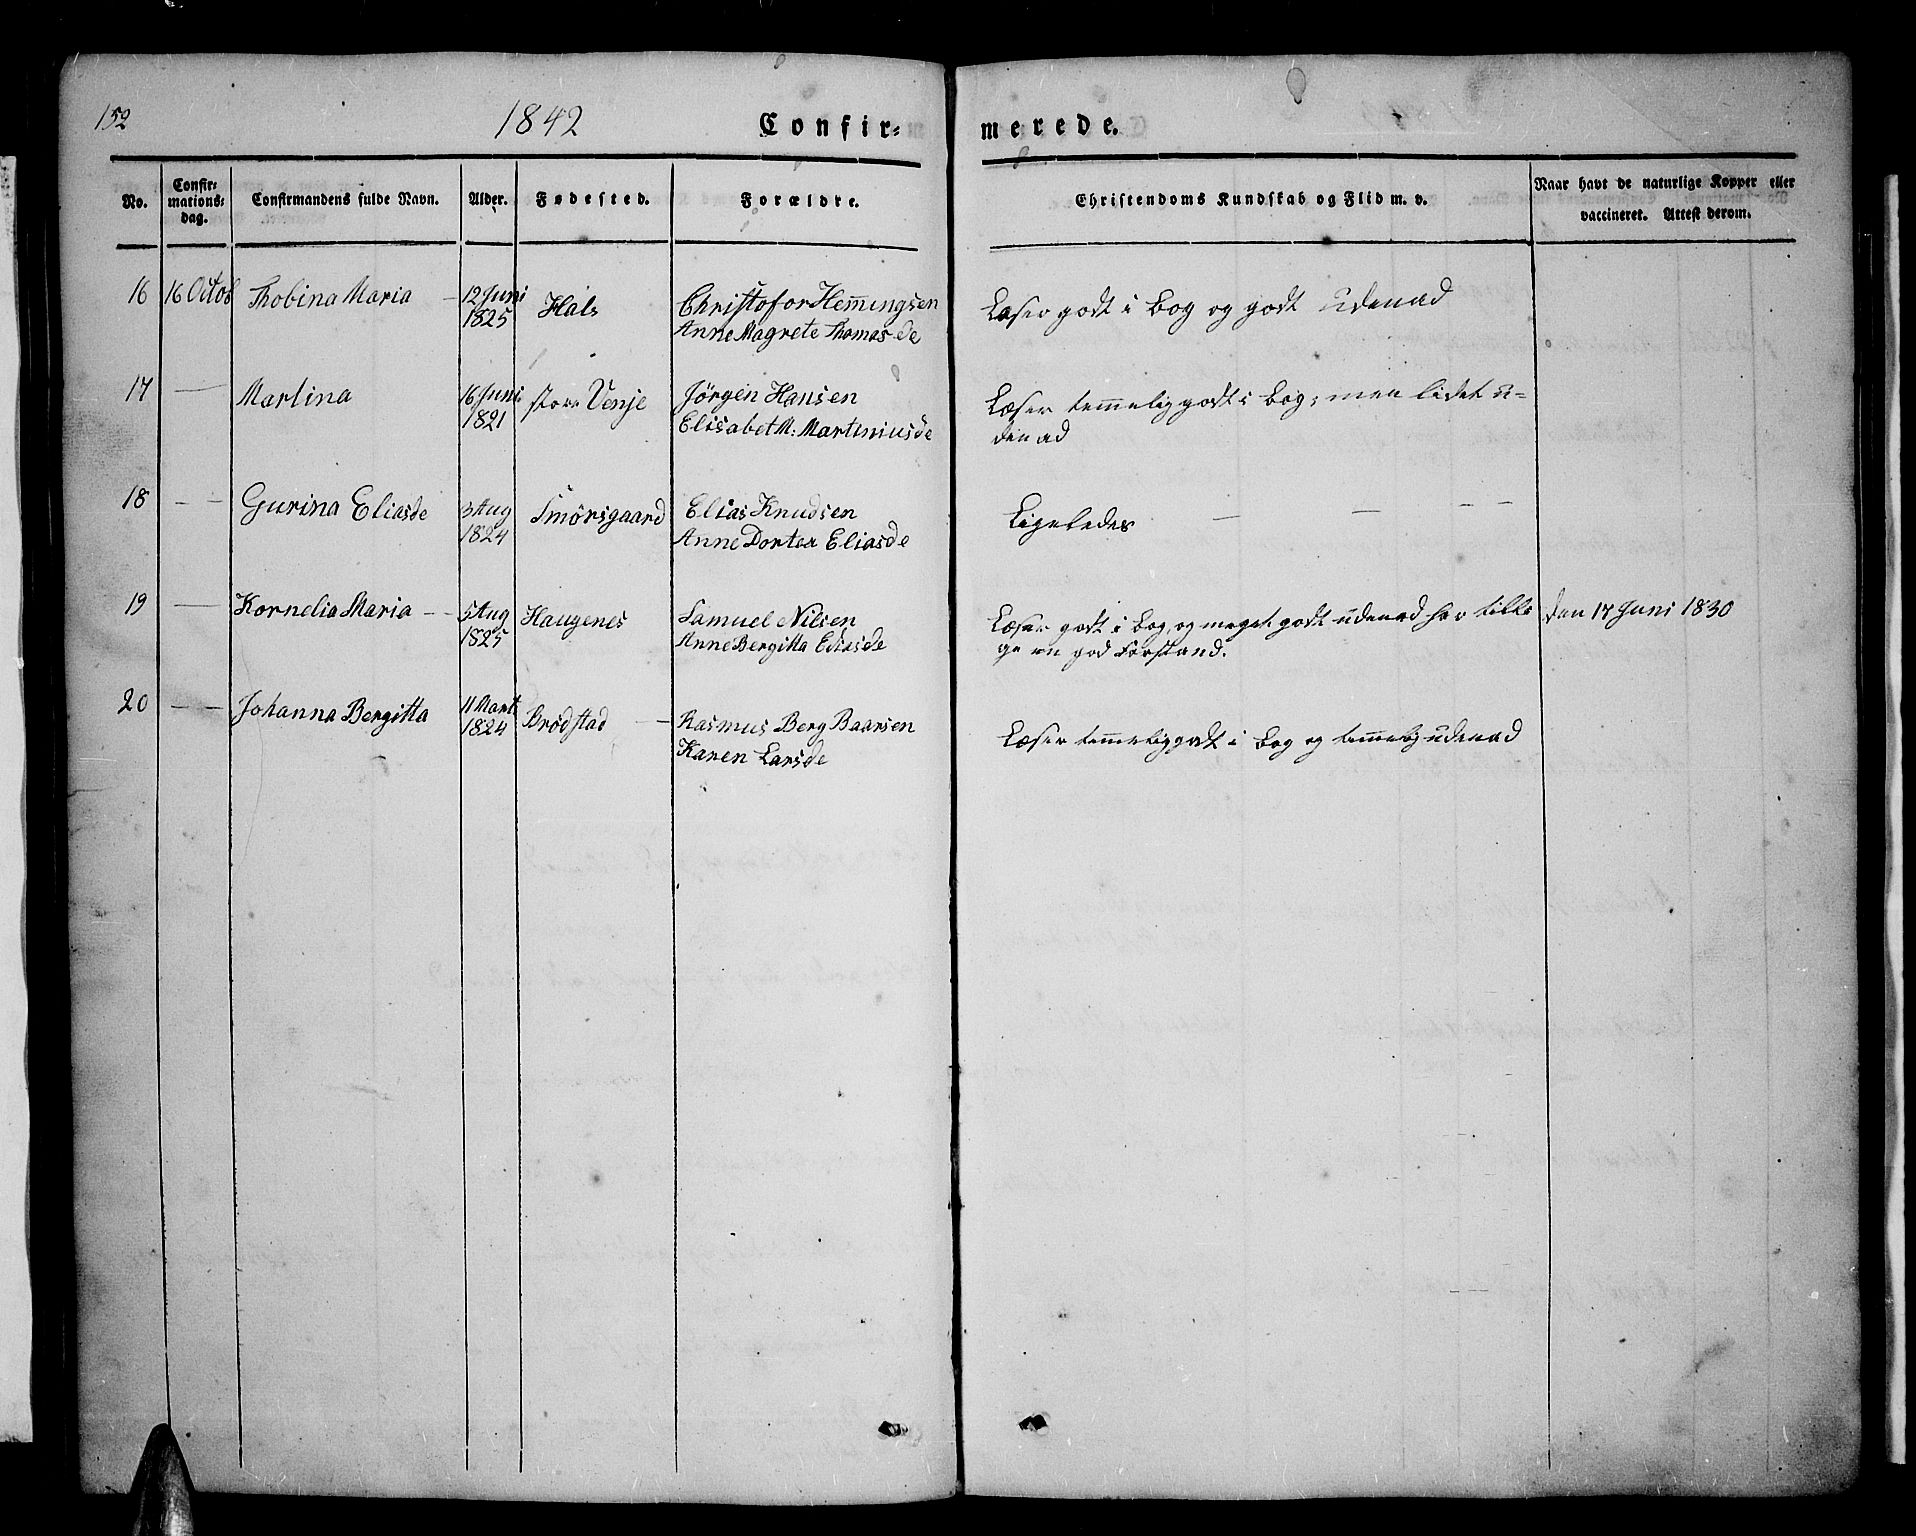 152
1842
Confir=
merede.
No.
Confir=
mations=
dag.
Confirmandens fulde Navn.
Alder.
Fødested.
Forældre.
Christendoms Kundskab og Flid m. v.
Naar havt de naturlige Kopper eller
vaccineret. Attest derom.
16 16 Octob Thobina Maria — 12 Juni
1825 Hals Christofor Hemingsen
Anne Magrete Thomasde
Læser godt i Bog og godt udenad
17 — Martina 16 Juni
1821 store Venje Jörgen Hansen
Elisabet M: Martiniusde
Læser temmelig godt i Bog, men lidet u=
denad
18 — — Gurina Eliasde 3 Aug
1824 Smörsgaard Elias Knudsen
Anne Dortea Eliasde
Ligeledes — — — —
19 — Kornelia Maria — — 5 Aug
1825 Haugenes Samuel Nilsen
Anne Bergitta Eliasde
Læser godt i Bog, og meget godt udenad har tilli
ge en god Forstand.
den 17 Juni 1830
20 — — Johanna Bergitta 11 Mart
1824 Brodstad — Rasmus Berg Baarsen
Karen Larsde
Læser temmelig godt i Bog og temmelig udenad